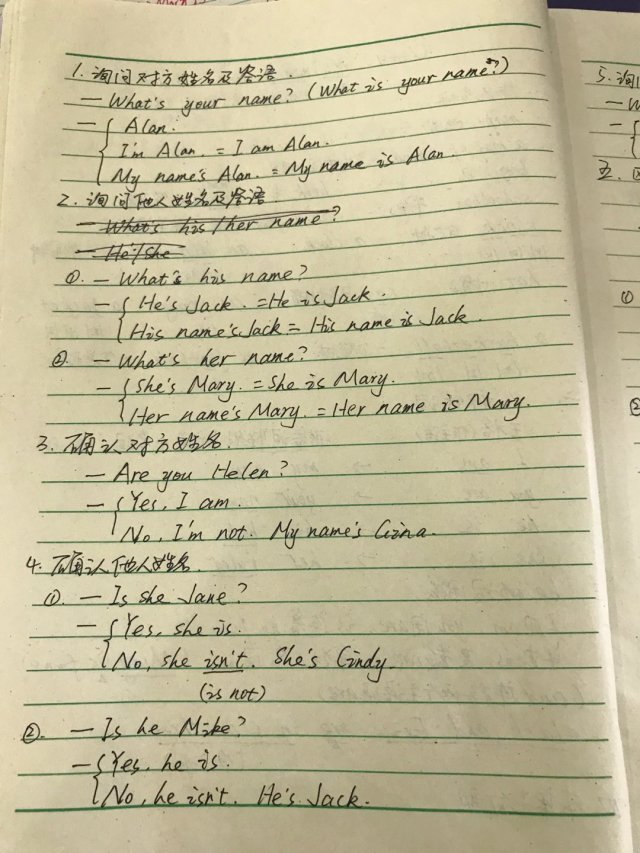 1. 询问对方姓名及答语.
— What's your name? (What is your name?)
— { Alan.
I'm Alan. = I am Alan.
My name's Alan. = My name is Alan.
2. 询问他人姓名及答语.
— What's his/her name?
— He/She
①. — What's his name?
— { He's Jack. = He is Jack.
His name's Jack = His name is Jack.
②. — What's her name?
— { She's Mary. = She is Mary.
Her name's Mary. = Her name is Mary.
3. 确认对方姓名.
— Are you Helen?
— { Yes, I am.
No, I'm not. My name's Gina.
4. 确认他人姓名.
①. — Is she Jane?
— { Yes, she is.
No, she isn't. She's Cindy.
(is not)
②. — Is he Mike?
— { Yes, he is.
No, he isn't. He's Jack.
5. 询
— W
— {
五.
①
②